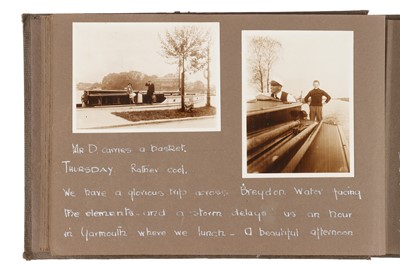 Mr D carries a basket.
THURSDAY Rather cool.
We have a glorious trip across Breydon Water facing
the elements and a storm delays us an hour
in Yarmouth where we lunch - A beautiful afternoon